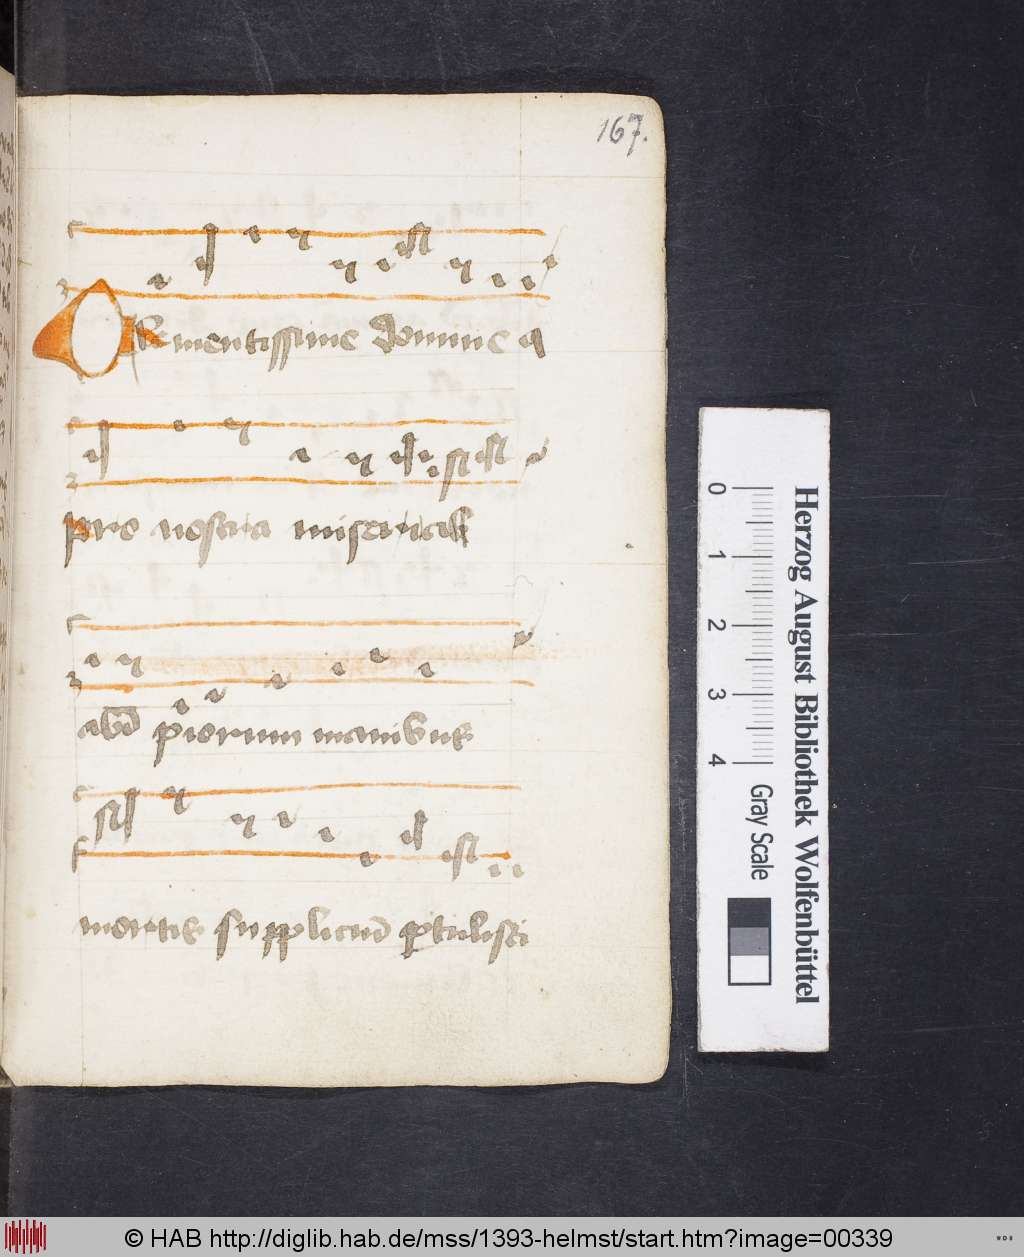 167.
Clementissime domine q
pro nostra miseria
abõ piorum manibus
mortis suppliciũ ꝑtulisti
0 1 2 3 4
Herzog August Bibliothek Wolfenbüttel
Gray Scale
© HAB http://diglib.hab.de/mss/1393-helmst/start.htm?image=00339